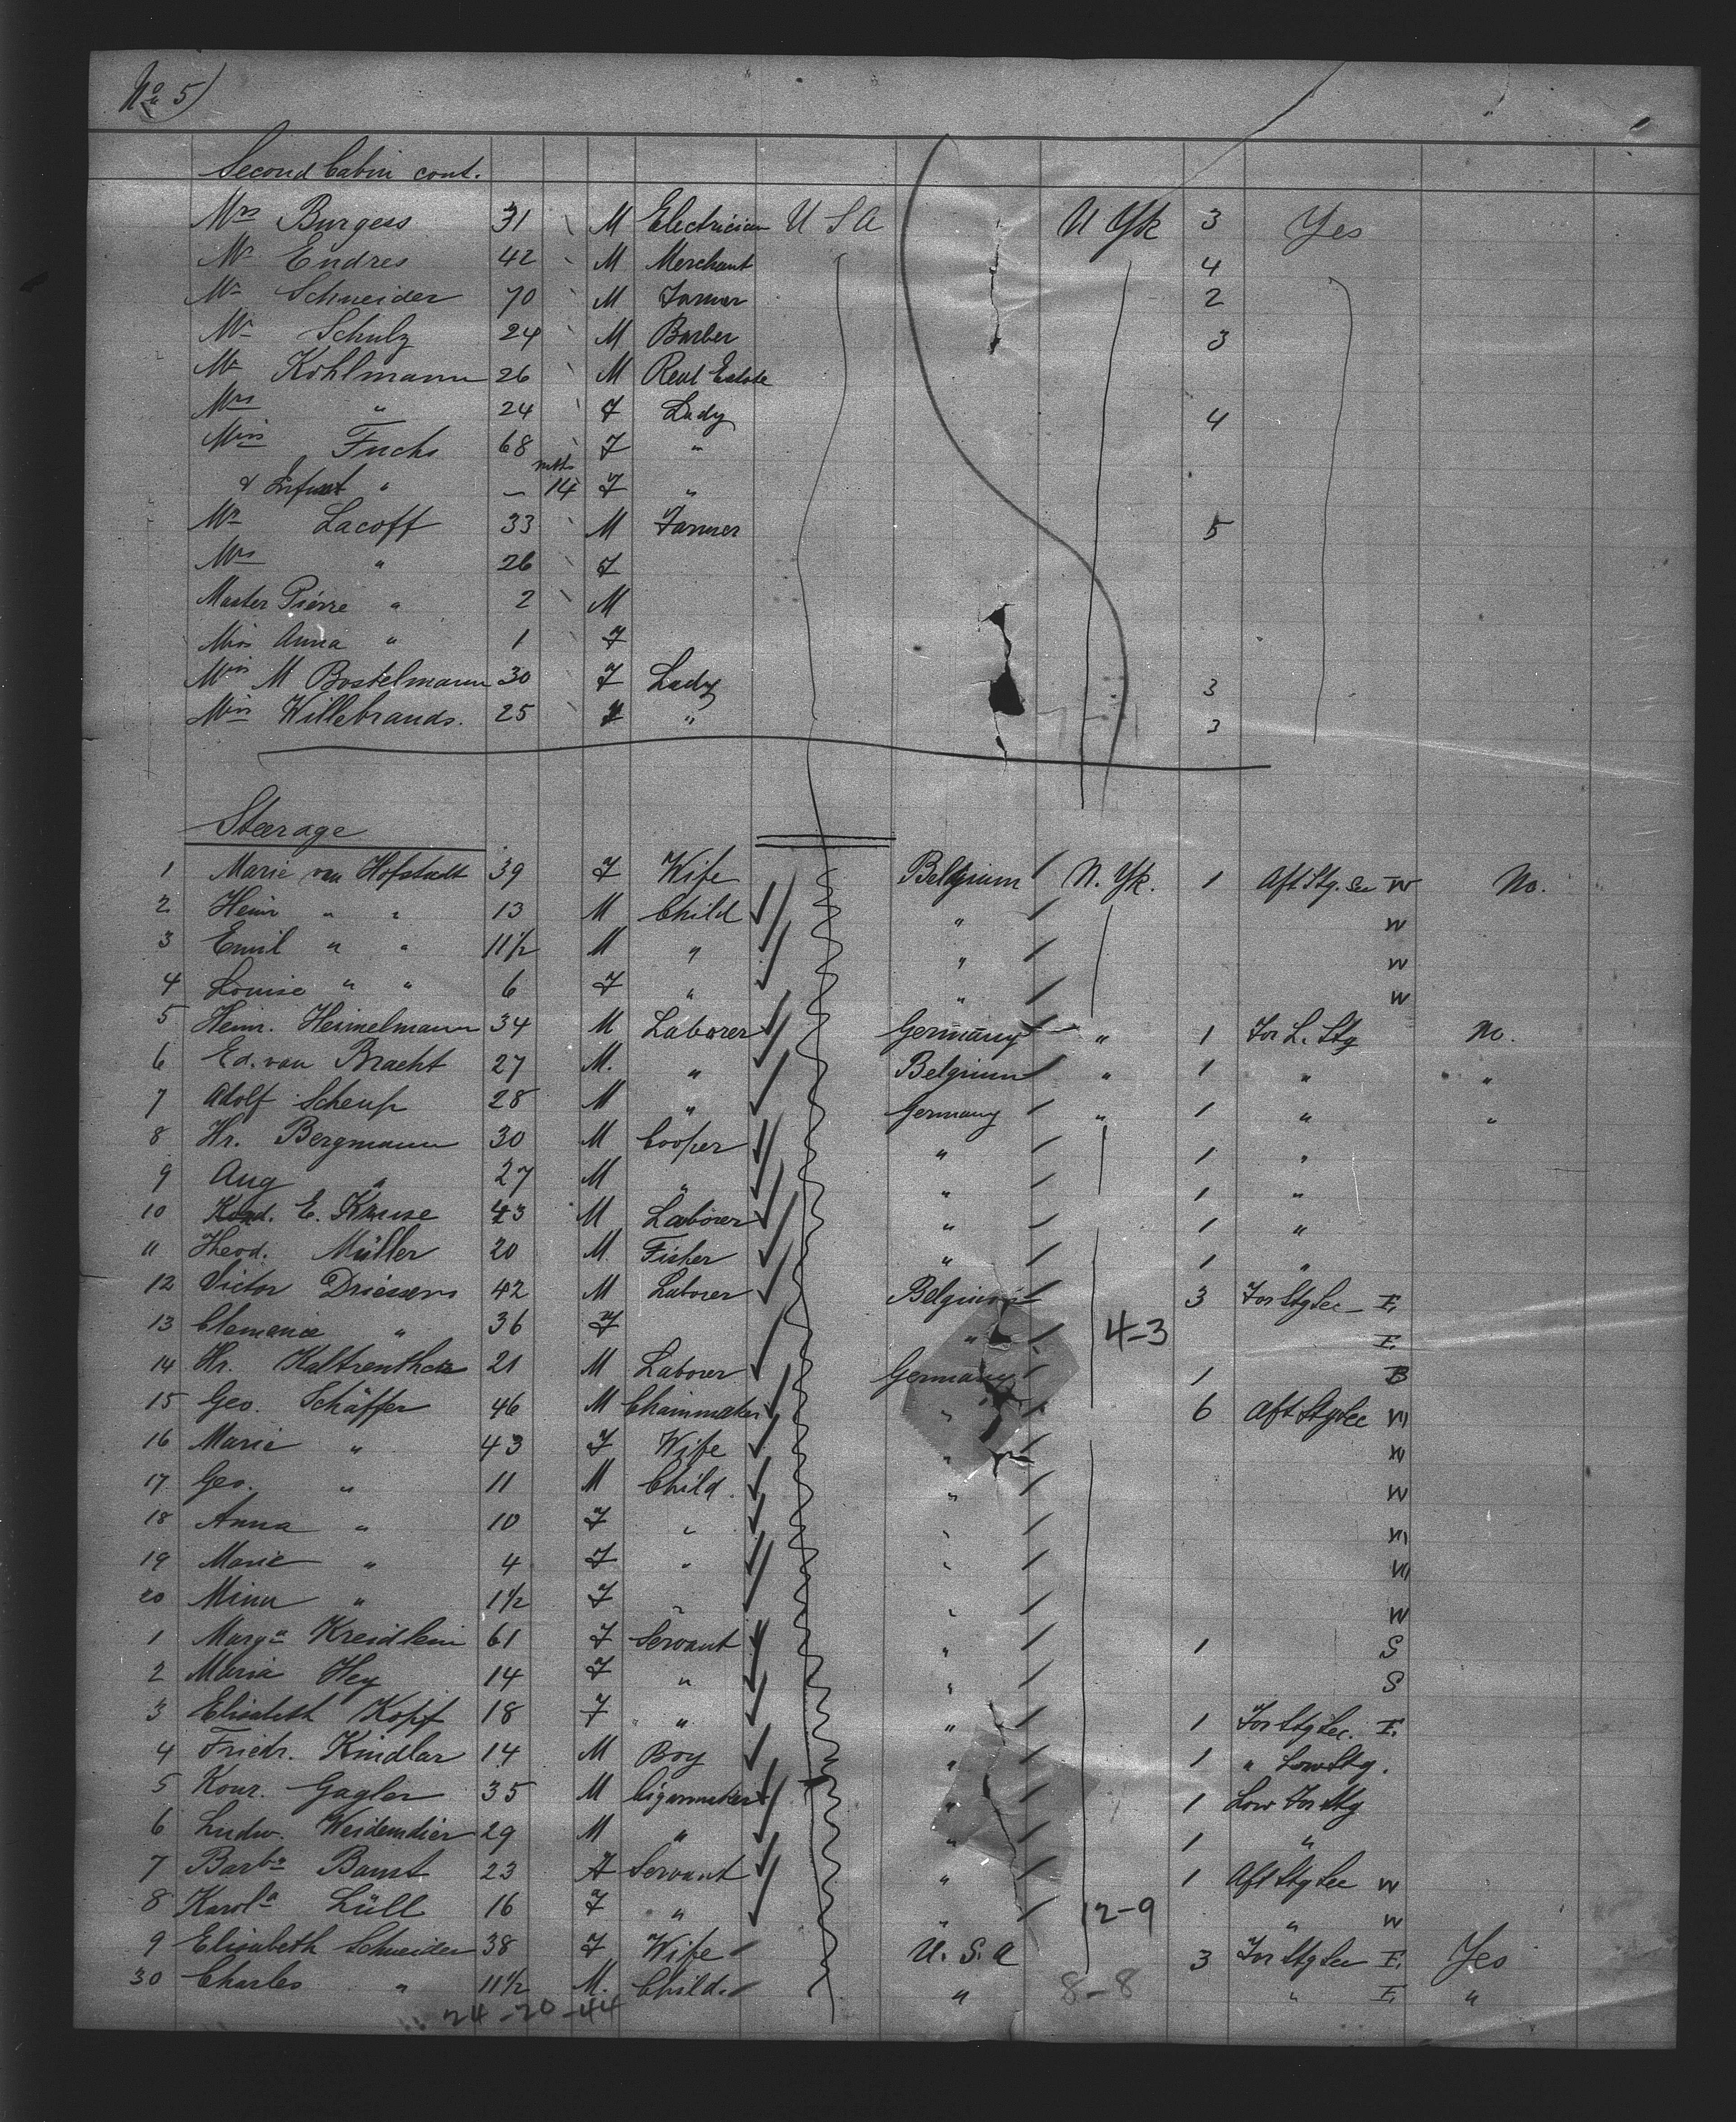 No 5)
Second Cabin cont.
Mrs Burgess 31 M Electrician U S A N Yk 3 Yes
Mr Endres 42 M Merchant 4
Mr Schneider 70 M Farmer 2
Mr Schulz 24 M Barber 3
Mr Kohlmann 26 M Real Estate
Mrs " 24 F Lady 4
Miss Fuchs 68 F "
& Infant " — mths 14 F "
Mr Lacoff 33 M Farmer 5
Mrs " 26 F
Master Pierre " 2 M
Miss Anna " 1 F
Miss M Bostelmann 30 F Lady 3
Miss Willebrands. 25 F " 3
Steerage
1 Marie van Hofstadt 39 F Wife Belgium N. Yk. 1 Aft Stg. Sec W No.
2 Heinr " " 13 M Child " W
3 Emil " " 11 1/2 M " " W
4 Louise " " 6 F " " W
5 Heinr. Heinelmann 34 M Laborer Germany " 1 For L. Stg No.
6 Ed. van Bracht 27 M. " Belgium " 1 " "
7 Adolf Scheup 28 M " Germany " 1 " "
8 Hr. Bergmann 30 M Cooper " 1 "
9 Aug " 27 M " " 1 "
10 E. Kruse 43 M Laborer " 1 "
11 Theod. Müller 20 M. Fisher " 1 "
12 Victor Driessens 42 M Laborer Belgium 3 For Stg Sec E.
13 Clemence " 36 F " 4-3 E.
14 Hr. 21 M Laborer Germany 1 B
15 Geo. Schäffer 46 M Chainmaker " 6 Aft Stg Sec W
16 Marie " 43 F Wife " W
17 Geo. " 11 M Child. " W
18 Anna " 10 F " " W
19 Marie " 4 F " " W
20 Mina " 1 1/2 F " " W
1 Marga Kreidlein 61 F Servant " 1 S
2 Maria Hey 14 F " " S
3 Elisabeth Kopf 18 F " " 1 For Stg Sec. E.
4 Friedr. Kindlar 14 M Boy " 1 " Low Stg.
5 Konr. Gagler 35 M Cigarmaker " 1 Low For Stg
6 Ludw. Weidemdier 29 M " " 1 "
7 Barba Banst 23 F Servant " 1 Aft Stg Sec W
8 Karola Lüll 16 F " " 12-9 " W
9 Elisabeth Schneider 38 F Wife U. S. A 3 For Stg Sec E. Yes
30 Charles " 11 1/2 M. Child. " 8-8 " E. "
24-20-44